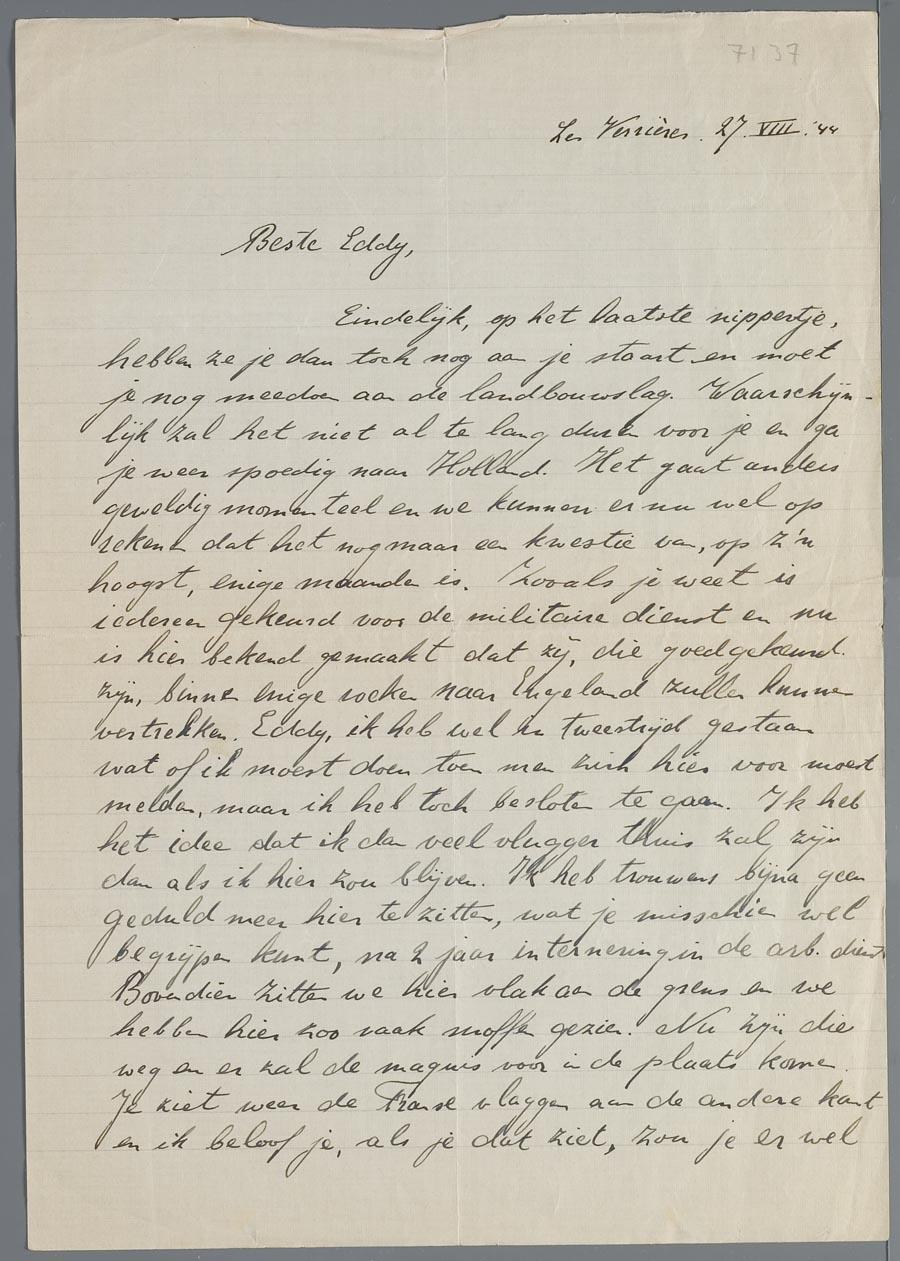 7137
Les Verrières. 27. VIII. '44
Beste Eddy,
Eindelijk, op het laatste nippertje,
hebben ze je dan toch nog aan je staart en moet
je nog meedoen aan de landbouwslag. Waarschijn-
lijk zal het niet al te lang duren voor je en ga
je weer spoedig naar Holland. Het gaat anders
geweldig momenteel en we kunnen er nu wel op
rekenen dat het nog maar een kwestie van, op z'n
hoogst, enige maanden is. Zooals je weet is
iedereen gekeurd voor de militaire dienst en nu
is hier bekend gemaakt dat zij, die goedgekeurd
zijn, binnen enige weken naar Engeland zullen kunnen
vertrekken. Eddy, ik heb wel in tweestrijd gestaan
wat of ik moest doen toen men zich hier voor moest
melden, maar ik heb toch besloten te gaan. Ik heb
het idee dat ik dan veel vlugger thuis zal zijn
dan als ik hier zou blijven. Ik heb trouwens bijna geen
geduld meer hier te zitten, wat je misschien wel
begrijpen kunt, na 2 jaar internering in de arb. dienst
Bovendien zitten we hier vlak aan de grens en we
hebben hier zoo vaak moffen gezien. Nu zijn die
weg en er zal de maquis voor in de plaats komen.
Je ziet weer de Franse vlaggen aan de andere kant
en ik beloof je, als je dat ziet, zou je er wel